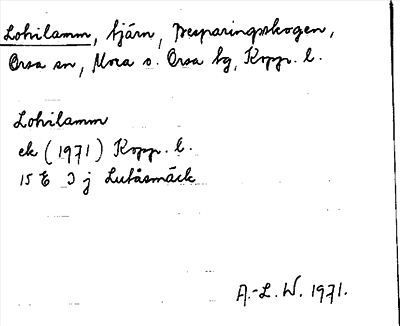 Lohilamm, tjärn, Besparingsskogen,
Orsa sn, Mora o. Orsa tg, Kopp. l.
Lohilamm
ek (1971) Kopp. l.
15 E 3 j Lutåsmäck
A.-L. W. 1971.